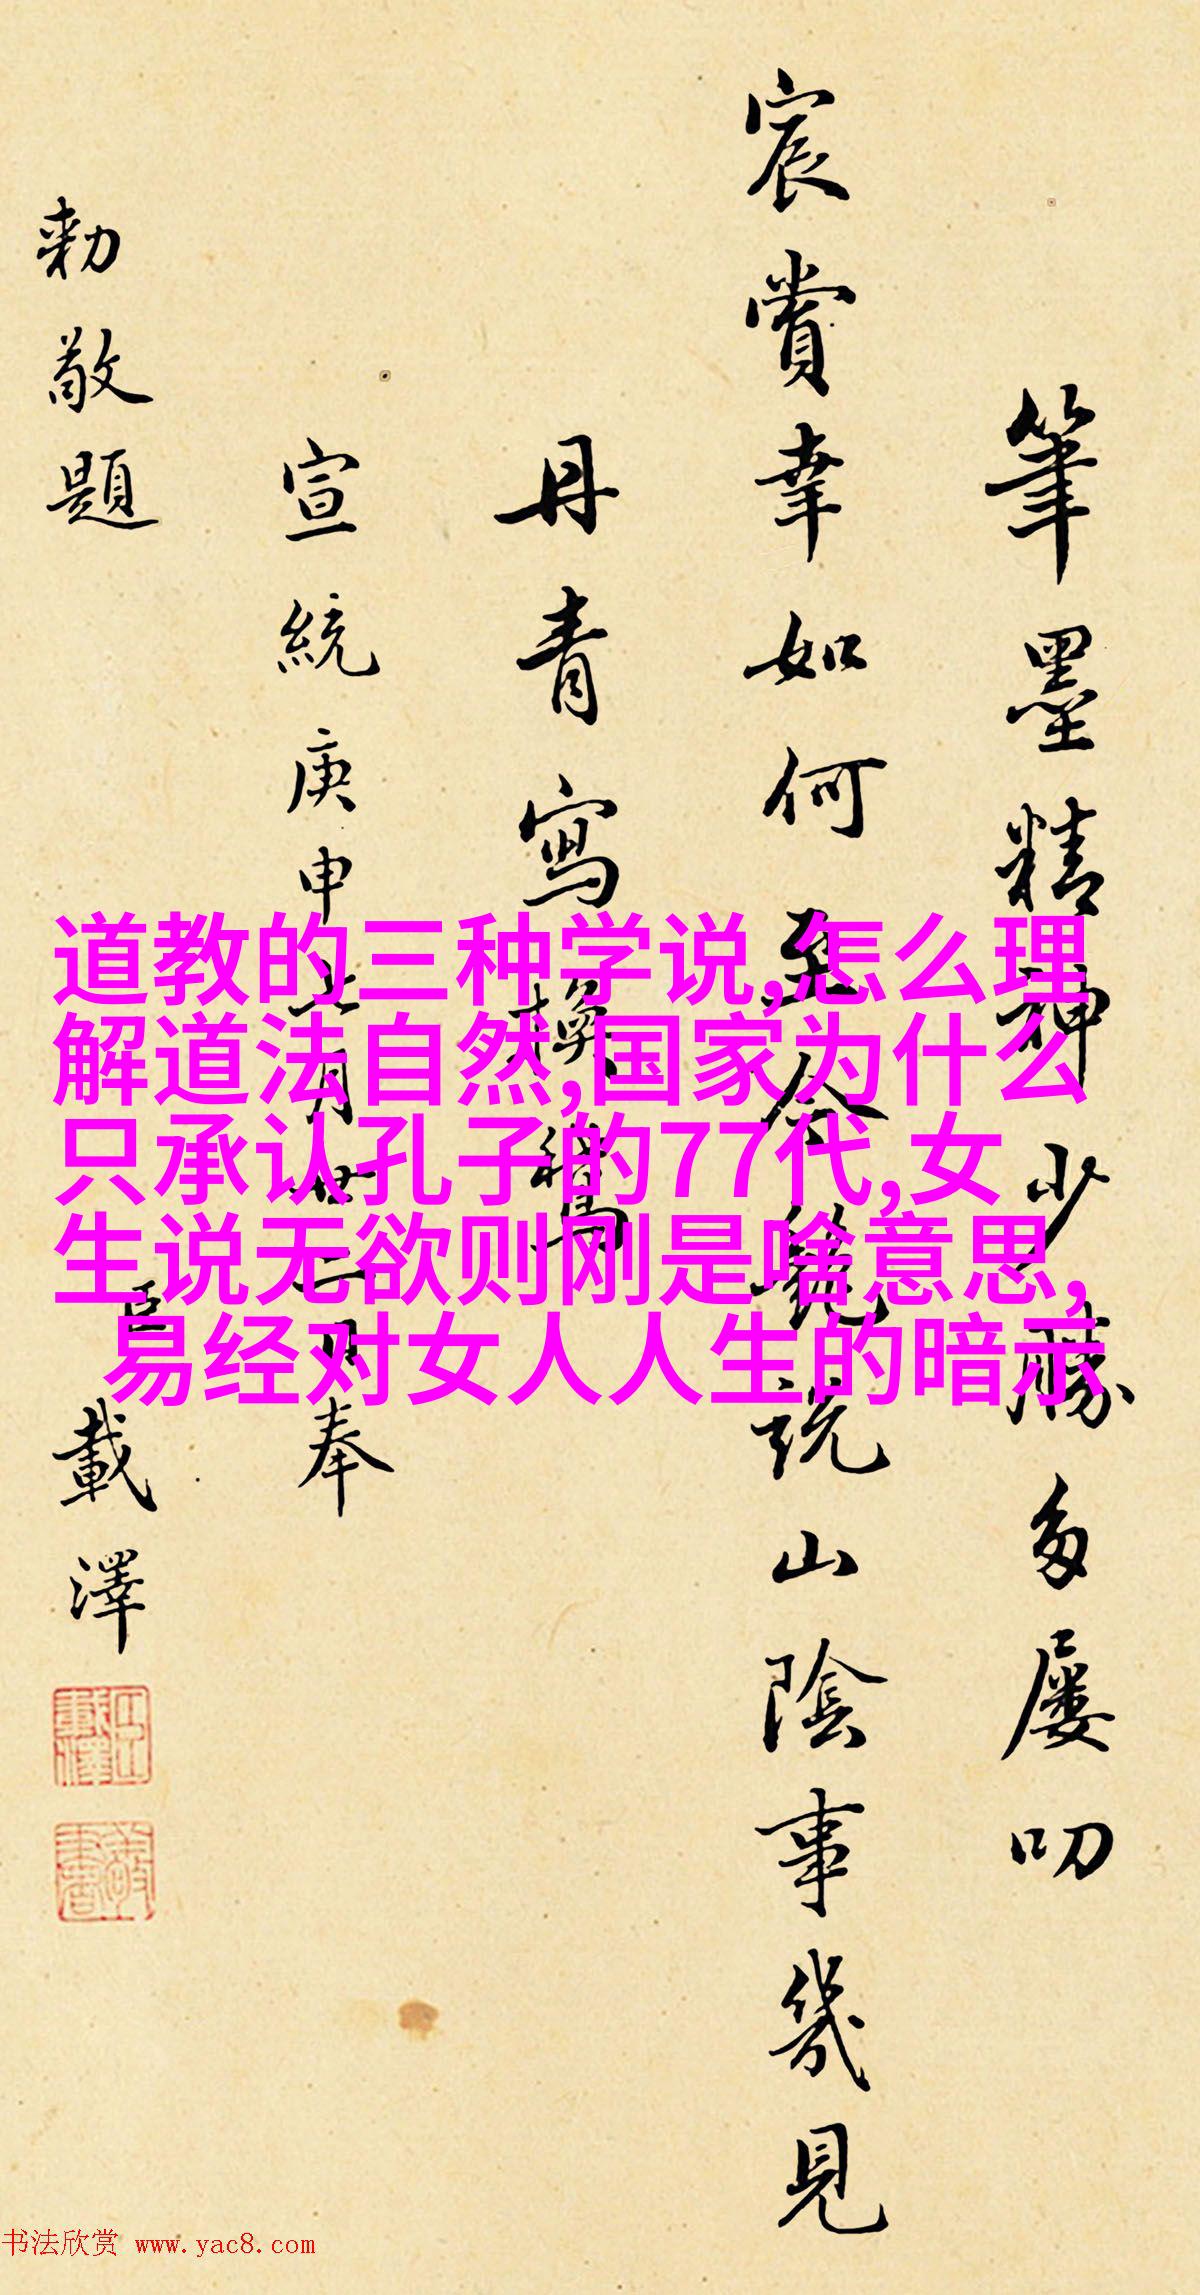 筆墨精神少勝多屢叨
宸賞幸如何至今藝說山陰事幾見
丹青寫換鵝
宣統庚申七月廿二日奉
敕敬題
臣載澤
道教的三种学说,怎么理
解道法自然,国家为什么
只承认孔子的77代,女
生说无欲则刚是啥意思,
易经对女人人生的暗示
书法欣赏 www.yac8.com